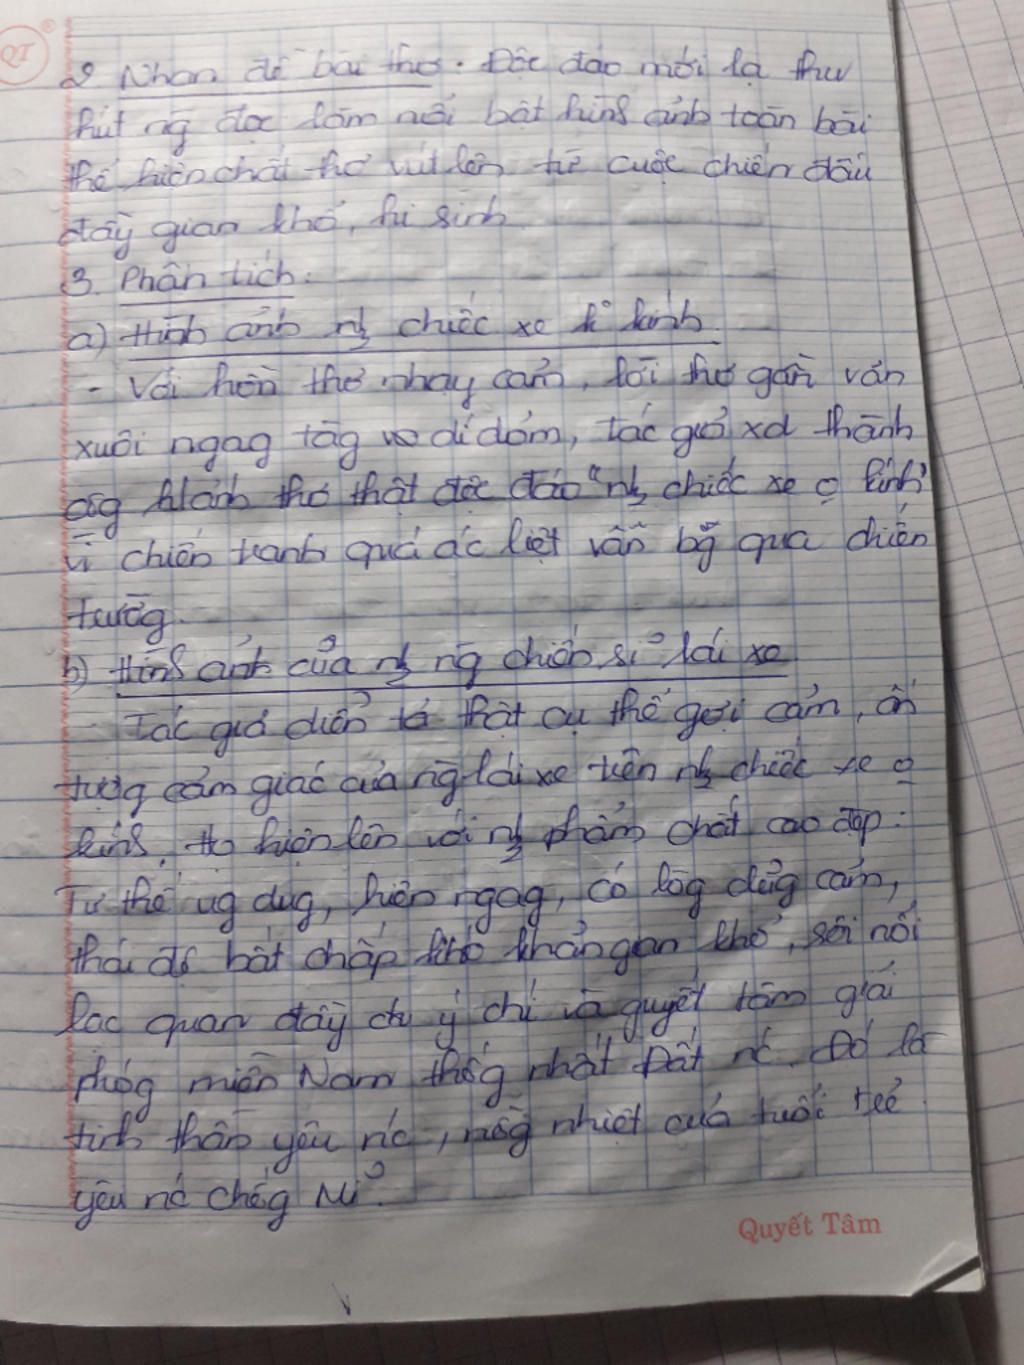 QT
2 Nhan đề bài thơ. Độc đáo mới lạ thu
hút ng đọc làm nổi bật hình ảnh toàn bài
thể hiện chất thơ vút lên từ cuộc chiến đấu
đầy gian khổ, hi sinh
3. Phân tích:
a) Hình ảnh nh~ chiếc xe k° kính
- Với hồn thơ nhạy cảm, lối thơ gần văn
xuôi ngag tàg và dí dỏm, tác giả xd thành
côg h/ảnh thơ thật độc đáo "nh~ chiếc xe k° kính"
vì chiến tranh quá ác liệt vẫn băg qua chiến
trườg.
b) Hình ảnh của nh~ ng chiến sĩ lái xe
- Tác giả diễn tả thật cụ thể gợi cảm, ấn
tượg cảm giác của ng lái xe trên nh~ chiếc xe k°
kính. Họ hiện lên với nh~ phẩm chất cao đẹp:
Tư thế ug dug, hiên ngag, có lòg dũg cảm,
thái độ bất chấp khó khăn gian khổ, sôi nổi
lạc quan đầy đủ ý chí và quyết tâm giải
phóg miền Nam thốg nhất Đất nc. Đó là
tinh thần yêu nc, nồg nhiệt của tuổi trẻ
yêu nc chốg Mĩ.
Quyết Tâm